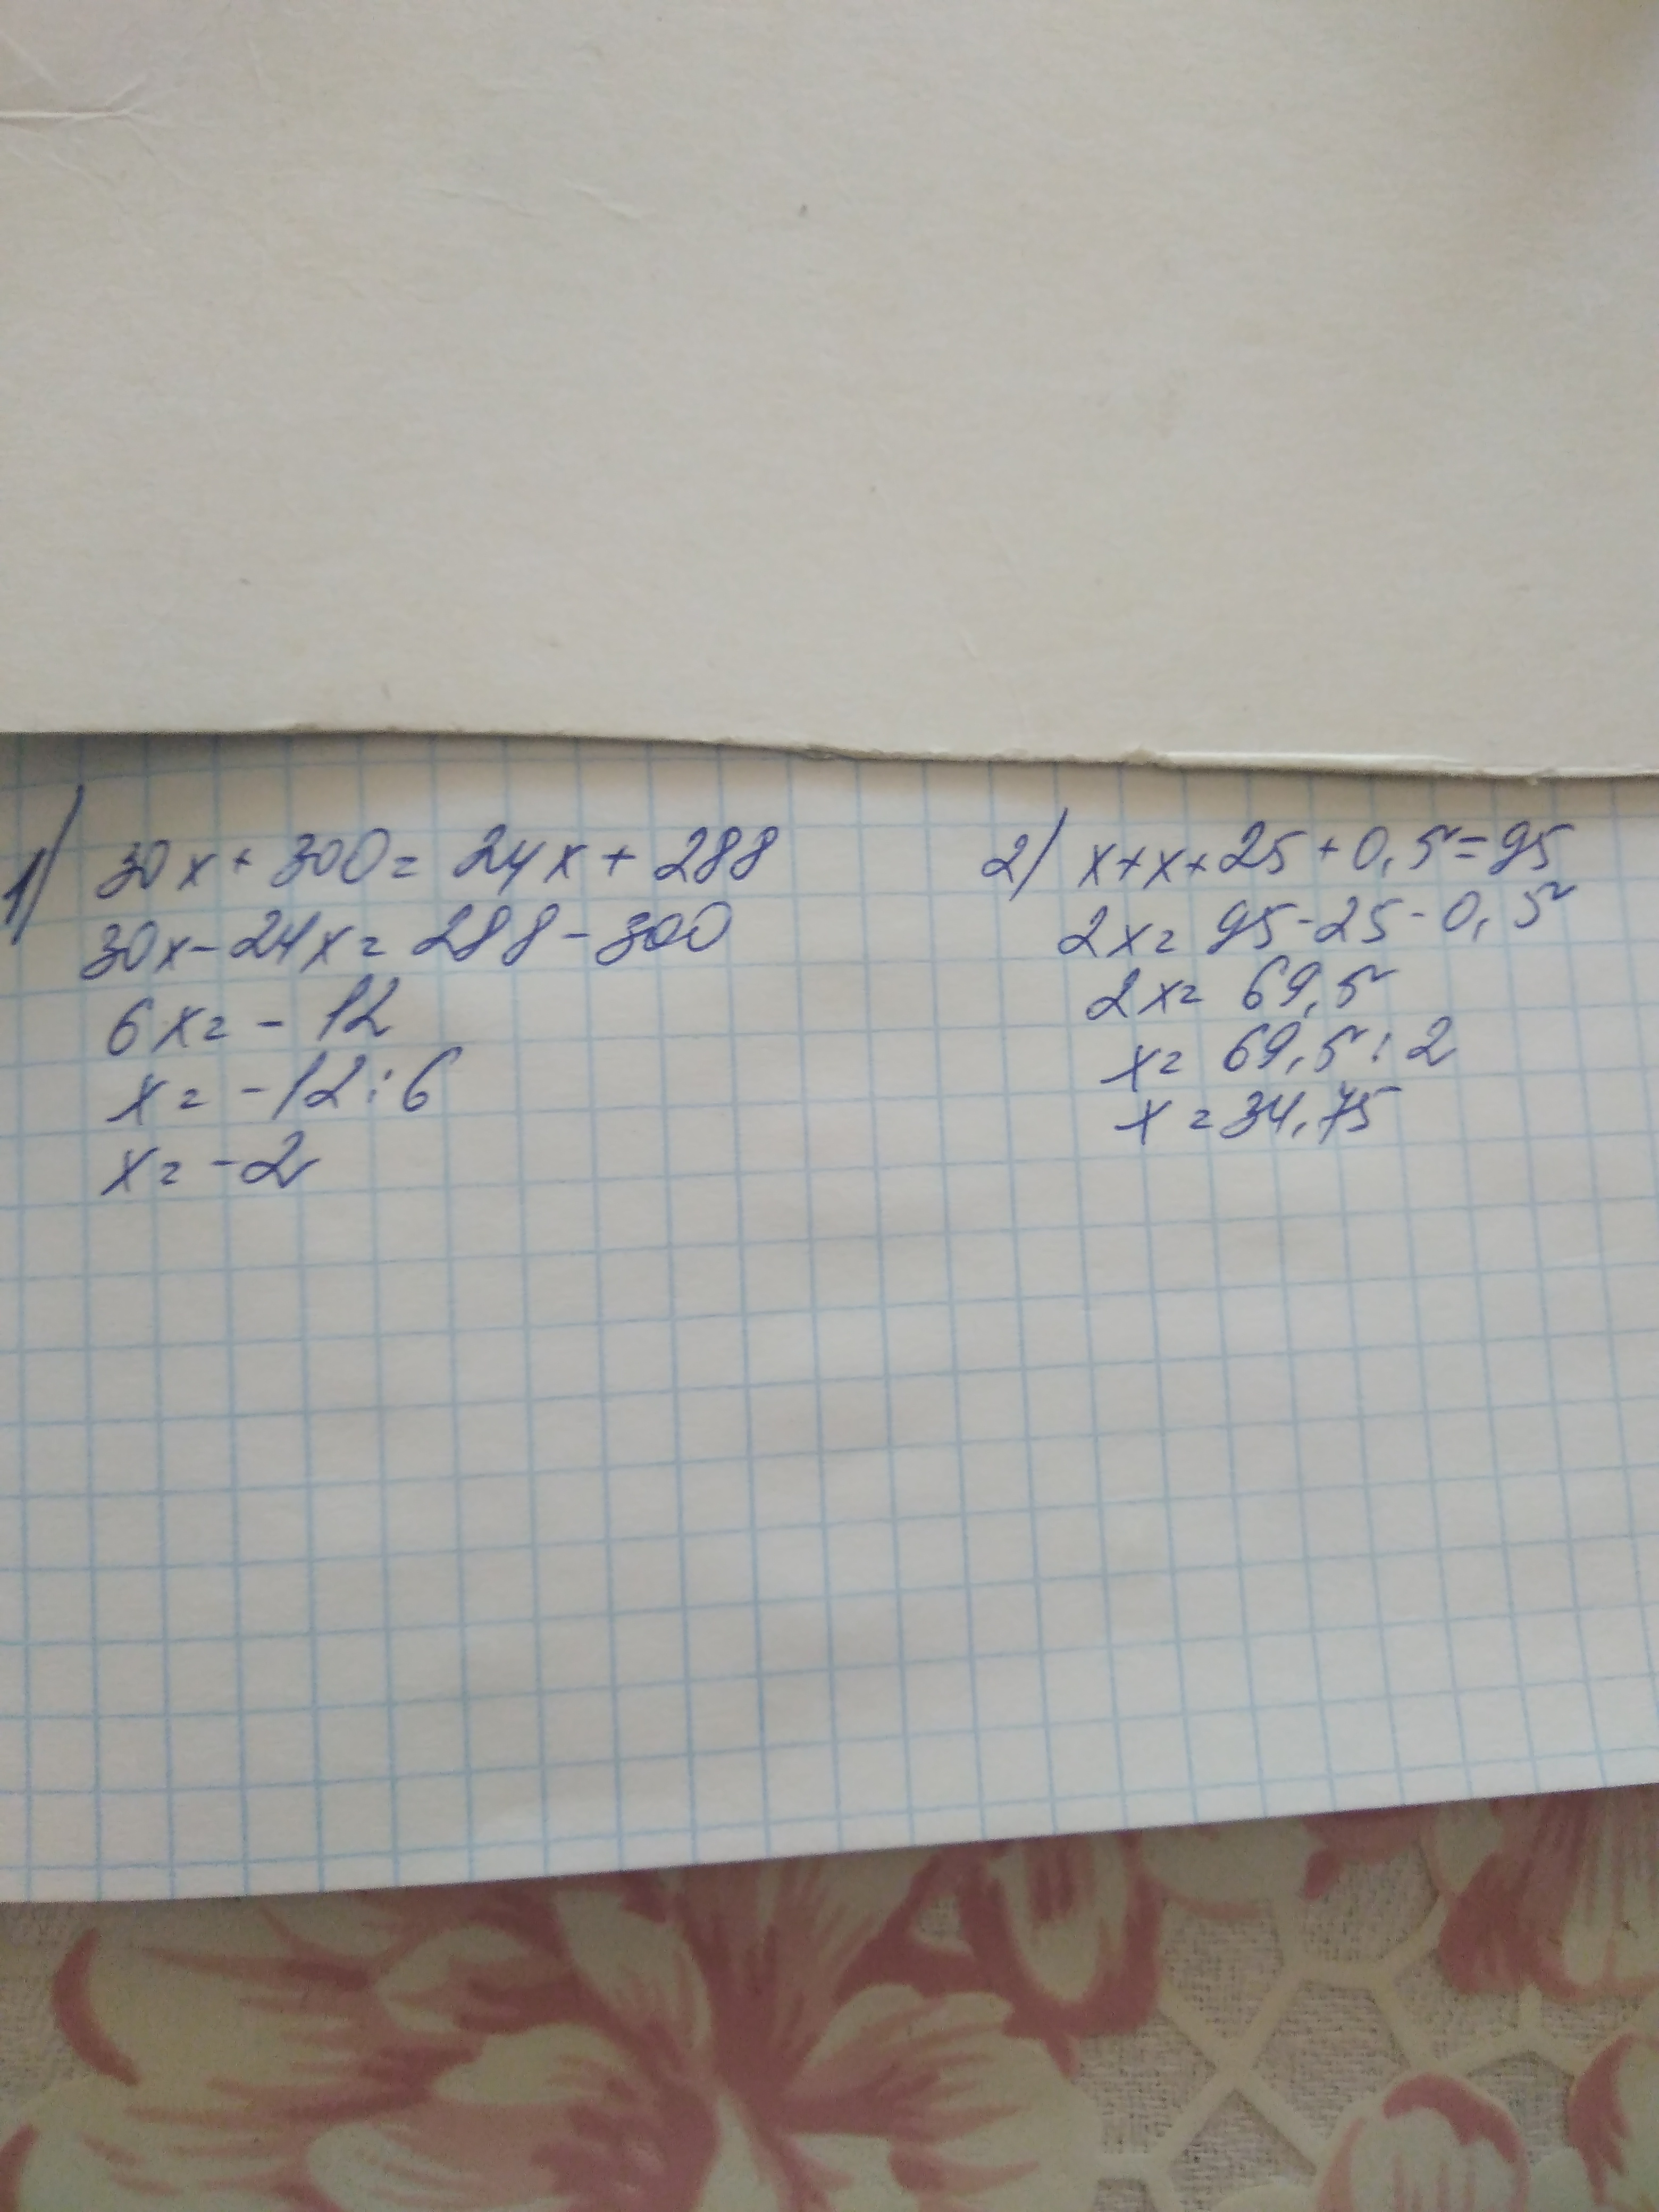 1) 30x + 300 = 24x + 288
30x - 24x = 288 - 300
6x = - 12
x = -12 : 6
x = -2
2) x + x + 25 + 0,5 = 95
2x = 95 - 25 - 0,5
2x = 69,5
x = 69,5 : 2
x = 34,75